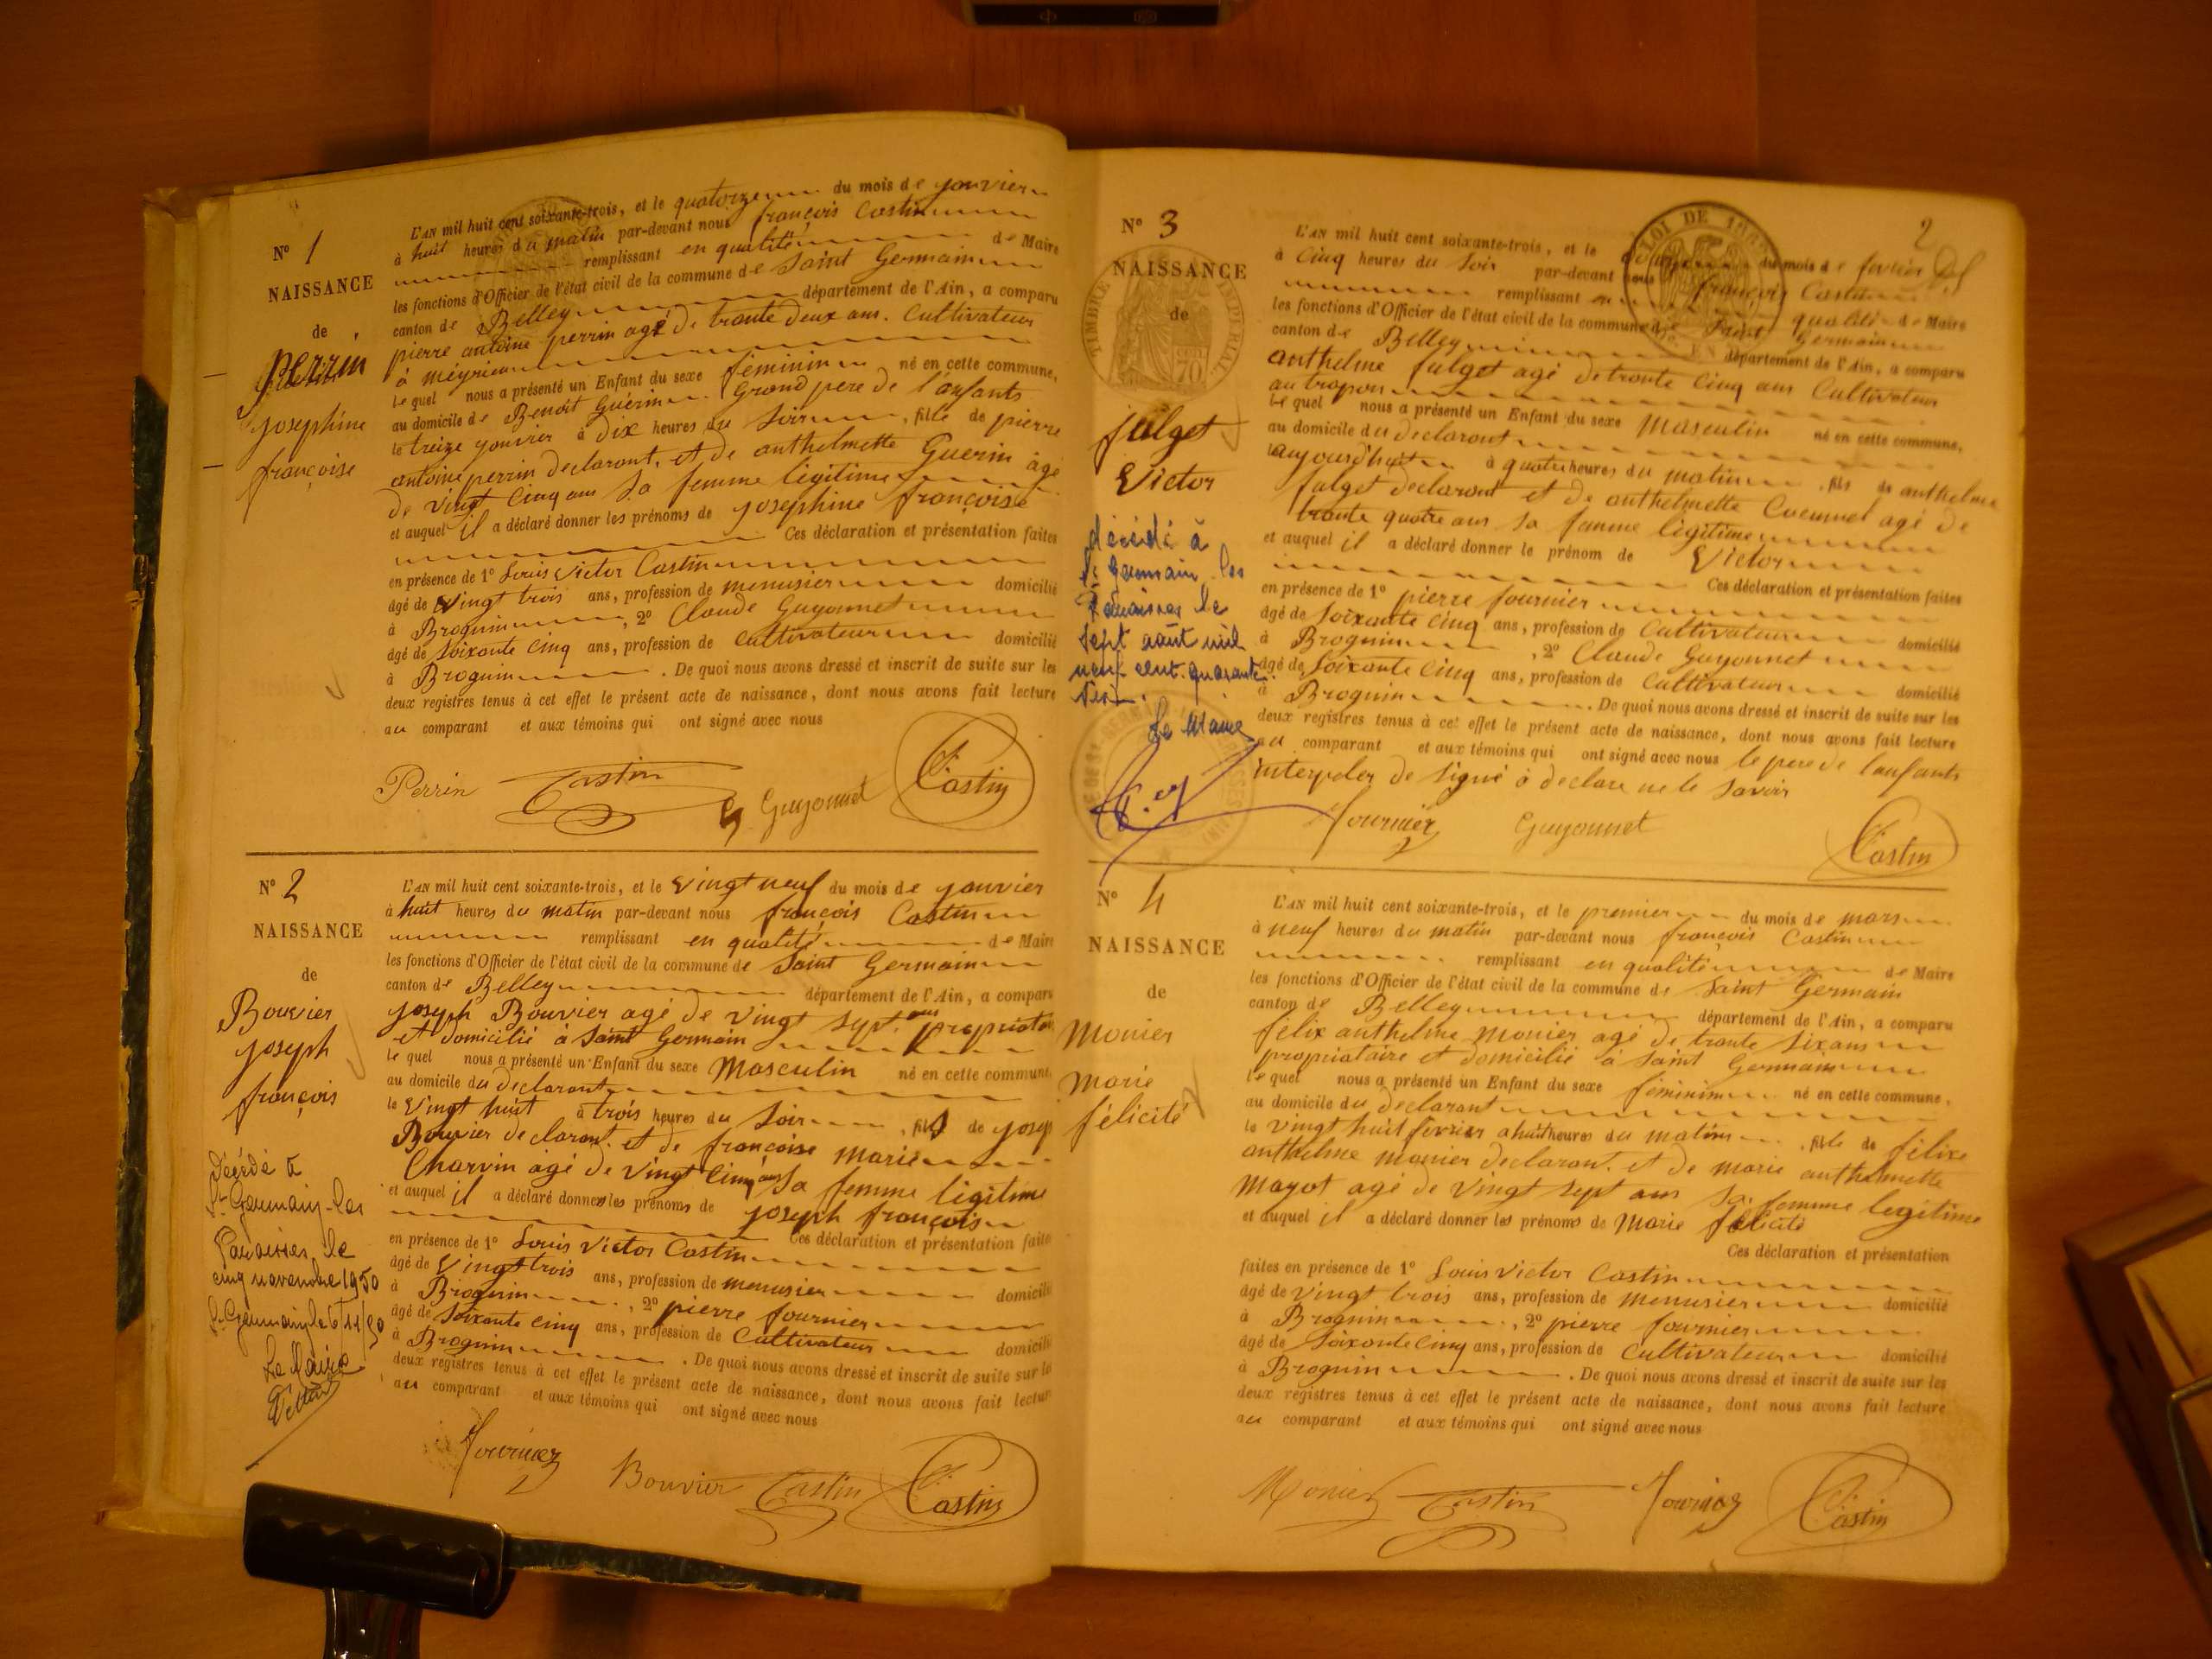 N° 1
NAISSANCE
de
Perrin
josephine
françoise
L'AN mil huit cent soixante-trois, et le quatorze du mois de janvier
à huit heures du matin par-devant nous françois Castin
remplissant en qualité de Maire
les fonctions d'Officier de l'état civil de la commune de Saint Germain
canton de Belley département de l'Ain, a comparu
pierre antoine perrin agé de trante deux ans. Cultivateur
à méyrieu
lequel nous a présenté un Enfant du sexe féminin né en cette commune,
au domicile de Benoit Guérin Grand pere de l'enfants
le treize janvier à dix heures du Soir, fille de pierre
antoine perrin declarant, et de anthelmette Guerin âgé
de vingt cinq ans Sa femme légitime
et auquel il a déclaré donner les prénoms de josephine françoise
Ces déclaration et présentation faites
en présence de 1° Louis Victor Castin
âgé de Vingt trois ans, profession de menusier domicilié
à Brognin, 2° Claude Guyonnet
âgé de Soixante Cinq ans, profession de Cultivateur domicilié
à Brognin. De quoi nous avons dressé et inscrit de suite sur les
deux registres tenus à cet effet le présent acte de naissance, dont nous avons fait lecture
au comparant et aux témoins qui ont signé avec nous
Perrin Castin Guyonnet Castin
N° 2
NAISSANCE
de
Bouvier
joseph
françois
Décédé à
St Germain-les
Paroisses le
cinq novembre 1950
St Germain le 6/11/50
Le Maire
L'AN mil huit cent soixante-trois, et le Vingt neuf du mois de janvier
à huit heures du matin par-devant nous françois Castin
remplissant en qualité de Maire
les fonctions d'Officier de l'état civil de la commune de Saint Germain
canton de Belley département de l'Ain, a comparu
joseph Bouvier agé de vingt sept ans propriéta
et domicilié à Saint Germain
lequel nous a présenté un Enfant du sexe Masculin né en cette commune
au domicile du declarant
le Vingt huit à trois heures du Soir, fils de josep
Bouvier declarant, et de françoise marie
Charvin agé de Vingt Cinq ans Sa femme légitime
et auquel il a déclaré donner les prénoms de joseph françois
Ces déclaration et présentation faite
en présence de 1° Louis Victor Castin
âgé de Vingt trois ans, profession de menusier domicili
à Brognin, 2° pierre fournier
âgé de Soixante Cinq ans, profession de Cultivateur domicili
à Brognin. De quoi nous avons dressé et inscrit de suite sur le
deux registres tenus à cet effet le présent acte de naissance, dont nous avons fait lectur
au comparant et aux témoins qui ont signé avec nous
Fournier Bouvier Castin Castin
2
N° 3
NAISSANCE
de
TIMBRE IMPERIAL
70
LOI DE
julget
Victor
décédé à
St Germain-les
Paroisses le
sept août mil
neuf cent quarante
Le Maire
L'AN mil huit cent soixante-trois, et le du mois de fevrier
à Cinq heures du Soir par-devant nous françois Castin
remplissant en qualité de Maire
les fonctions d'Officier de l'état civil de la commune de Saint Germain
canton de Belley département de l'Ain, a comparu
anthelme julget agé de trante Cinq ans Cultivateur
au trapon
lequel nous a présenté un Enfant du sexe Masculin né en cette commune,
au domicile du declarant
aujourd'huit à quatre heures du matin, fils de anthelme
julget declarant et de anthelmette Cuemmet agé de
trante quatre ans Sa femme légitime
et auquel il a déclaré donner le prénom de Victor
Ces déclaration et présentation faites
en présence de 1° pierre fournier
âgé de Soixante Cinq ans, profession de Cultivateur domicilié
à Brognin, 2° Claude Guyonnet
âgé de Soixante Cinq ans, profession de Cultivateur domicilié
à Brognin. De quoi nous avons dressé et inscrit de suite sur les
deux registres tenus à cet effet le présent acte de naissance, dont nous avons fait lecture
au comparant et aux témoins qui ont signé avec nous le pere de l'enfants
interpeler de Signé à declare ne le Savoir
Fournier Guyonnet Castin
N° 4
NAISSANCE
de
Monier
Marie
félicité
L'AN mil huit cent soixante-trois, et le premier du mois de mars
à neuf heures du matin par-devant nous françois Castin
remplissant en qualité de Maire
les fonctions d'Officier de l'état civil de la commune de Saint Germain
canton de Belley département de l'Ain, a comparu
félix anthelme monier agé de trante Six ans
propriataire et domicilié à Saint Germain
lequel nous a présenté un Enfant du sexe féminin né en cette commune.
au domicile du declarant
le vingt huit fevrier à huit heures du matin, fille de félix
anthelme monier declarant, et de marie anthelmette
Mayot agé de Vingt Sept ans Sa femme légitime
et auquel il a déclaré donner les prénoms de Marie félicité
Ces déclaration et présentation
faites en présence de 1° Louis Victor Castin
âgé de Vingt trois ans, profession de Menusier domicilié
à Brognin, 2° pierre fournier
âgé de Soixante Cinq ans, profession de Cultivateur domicilié
à Brognin. De quoi nous avons dressé et inscrit de suite sur les
deux registres tenus à cet effet le présent acte de naissance, dont nous avons fait lecture
au comparant et aux témoins qui ont signé avec nous
Monier Castin Fournier Castin